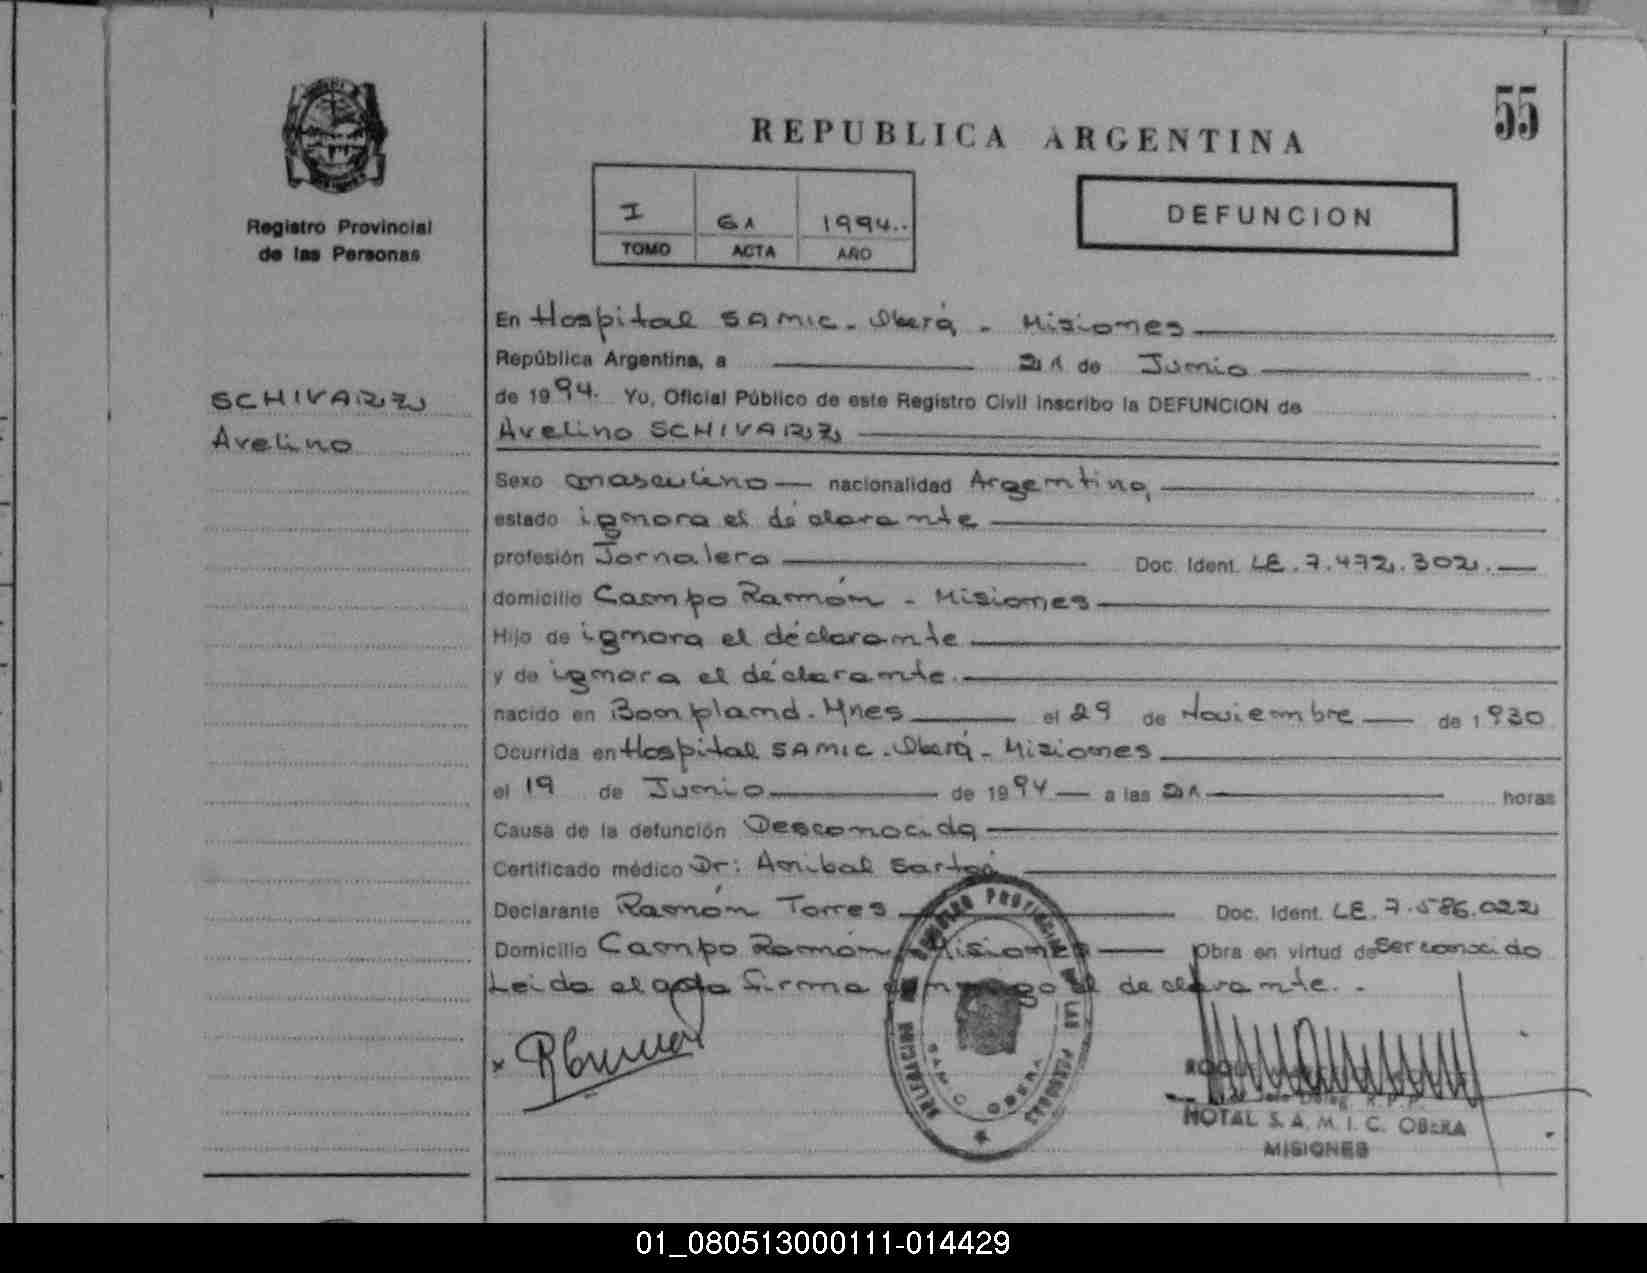 55
REPUBLICA ARGENTINA
Registro Provincial
de las Personas
I 61 1994..
TOMO ACTA AÑO
DEFUNCION
SCHIVARZ
Avelino
En Hospital SAMIC - Oberá - Misiones
República Argentina, a 21 de Junio
de 1994. Yo, Oficial Público de este Registro Civil inscribo la DEFUNCION de
Avelino SCHIVARZ
Sexo masculino nacionalidad Argentina
estado ignora el declarante
profesión Jornalero Doc. Ident. LE. 7.472.302.
domicilio Campo Ramón - Misiones
Hijo de ignora el declarante
y de ignora el declarante.
nacido en Bompland. Mnes el 29 de Noviembre de 1930
Ocurrida en Hospital SAMIC - Oberá - Misiones
el 19 de Junio de 1994 a las 21 horas
Causa de la defunción Desconocida
Certificado médico Dr: Anibal
Declarante Ramón Torres Doc. Ident. LE. 7.586.022
Domicilio Campo Ramón - Misiones Obra en virtud de Ser conocido
Leida el acta firma conmigo el declarante. -
HOTAL S. A. M. I. C. OBERA
MISIONES
01_080513000111-014429